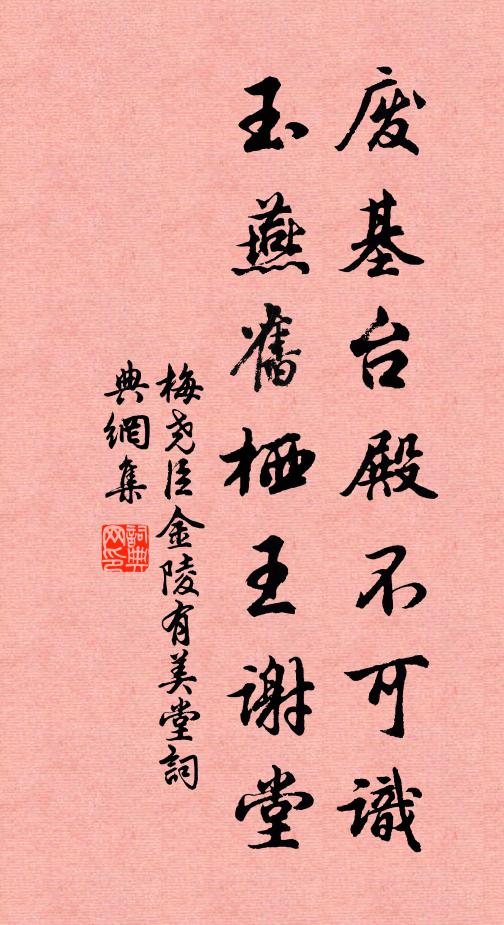 废基台殿不可識
玉燕舊栖王谢堂
梅尧臣金陵有美堂詞
典網集
詞典网印